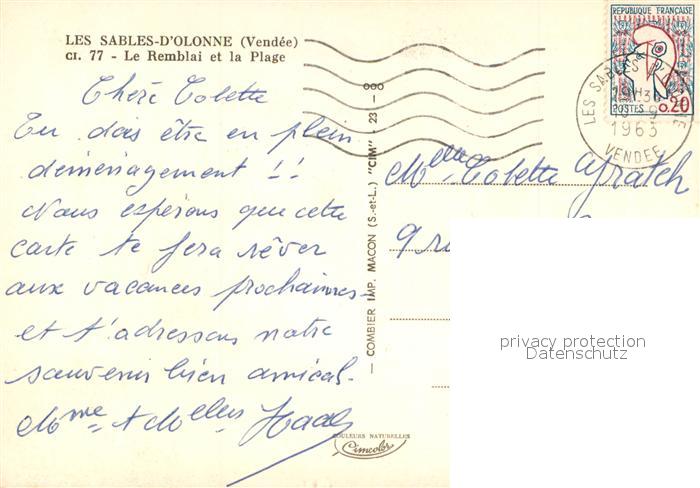 LES SABLES-D'OLONNE (Vendée)
CI. 77 - Le Remblai et la Plage
Chère Colette
Tu dois être en plein
déménagement !!
Nous espérons que cette
carte te fera rêver
aux vacances prochaines
et t'adressons notre
souvenir bien amical.
Mme & Melles Haas
COULEURS NATURELLES
Cimcolor
COMBIER IMP. MACON (S.-et-L.) "CIM" - 23 - ooo
REPUBLIQUE FRANÇAISE
POSTES 0.20
LES SABLES D'OLONNE
1963
VENDEE
Melle Colette
9
privacy protection
Datenschutz